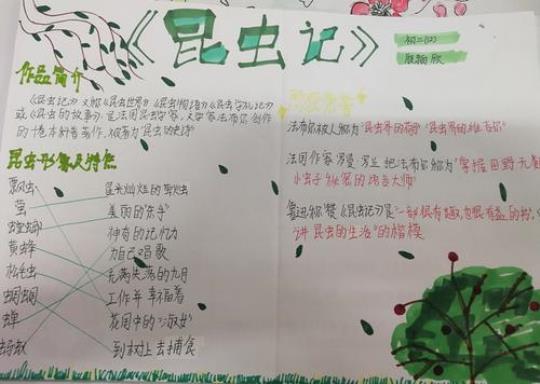 《昆虫记》
初二(12)
作品简介
《昆虫记》又称《昆虫世界》《昆虫物语》《昆虫学札记》
或《昆虫的故事》是法国昆虫学家、文学家法布尔创作
的长篇科普著作,被誉为"昆虫的史诗"
昆虫形象及特点
瓢虫 星光灿烂的萤火
萤 美丽的杀手
螳螂 神奇的记忆力
黄蜂 为自己唱歌
松毛虫 充满失落的九月
蝈蝈 工作年 幸福着
蝉 花园中的"淑女"
蚂蚁 到树上去捕食
法布尔被人称为"昆虫界的荷马""昆虫界的维吉尔"
法国作家罗曼·罗兰把法布尔称为"掌握田野无数
小虫子秘密的语言大师"
鲁迅称赞《昆虫记》是"一部很有趣,也很有益的书,
"讲昆虫的生活"的楷模